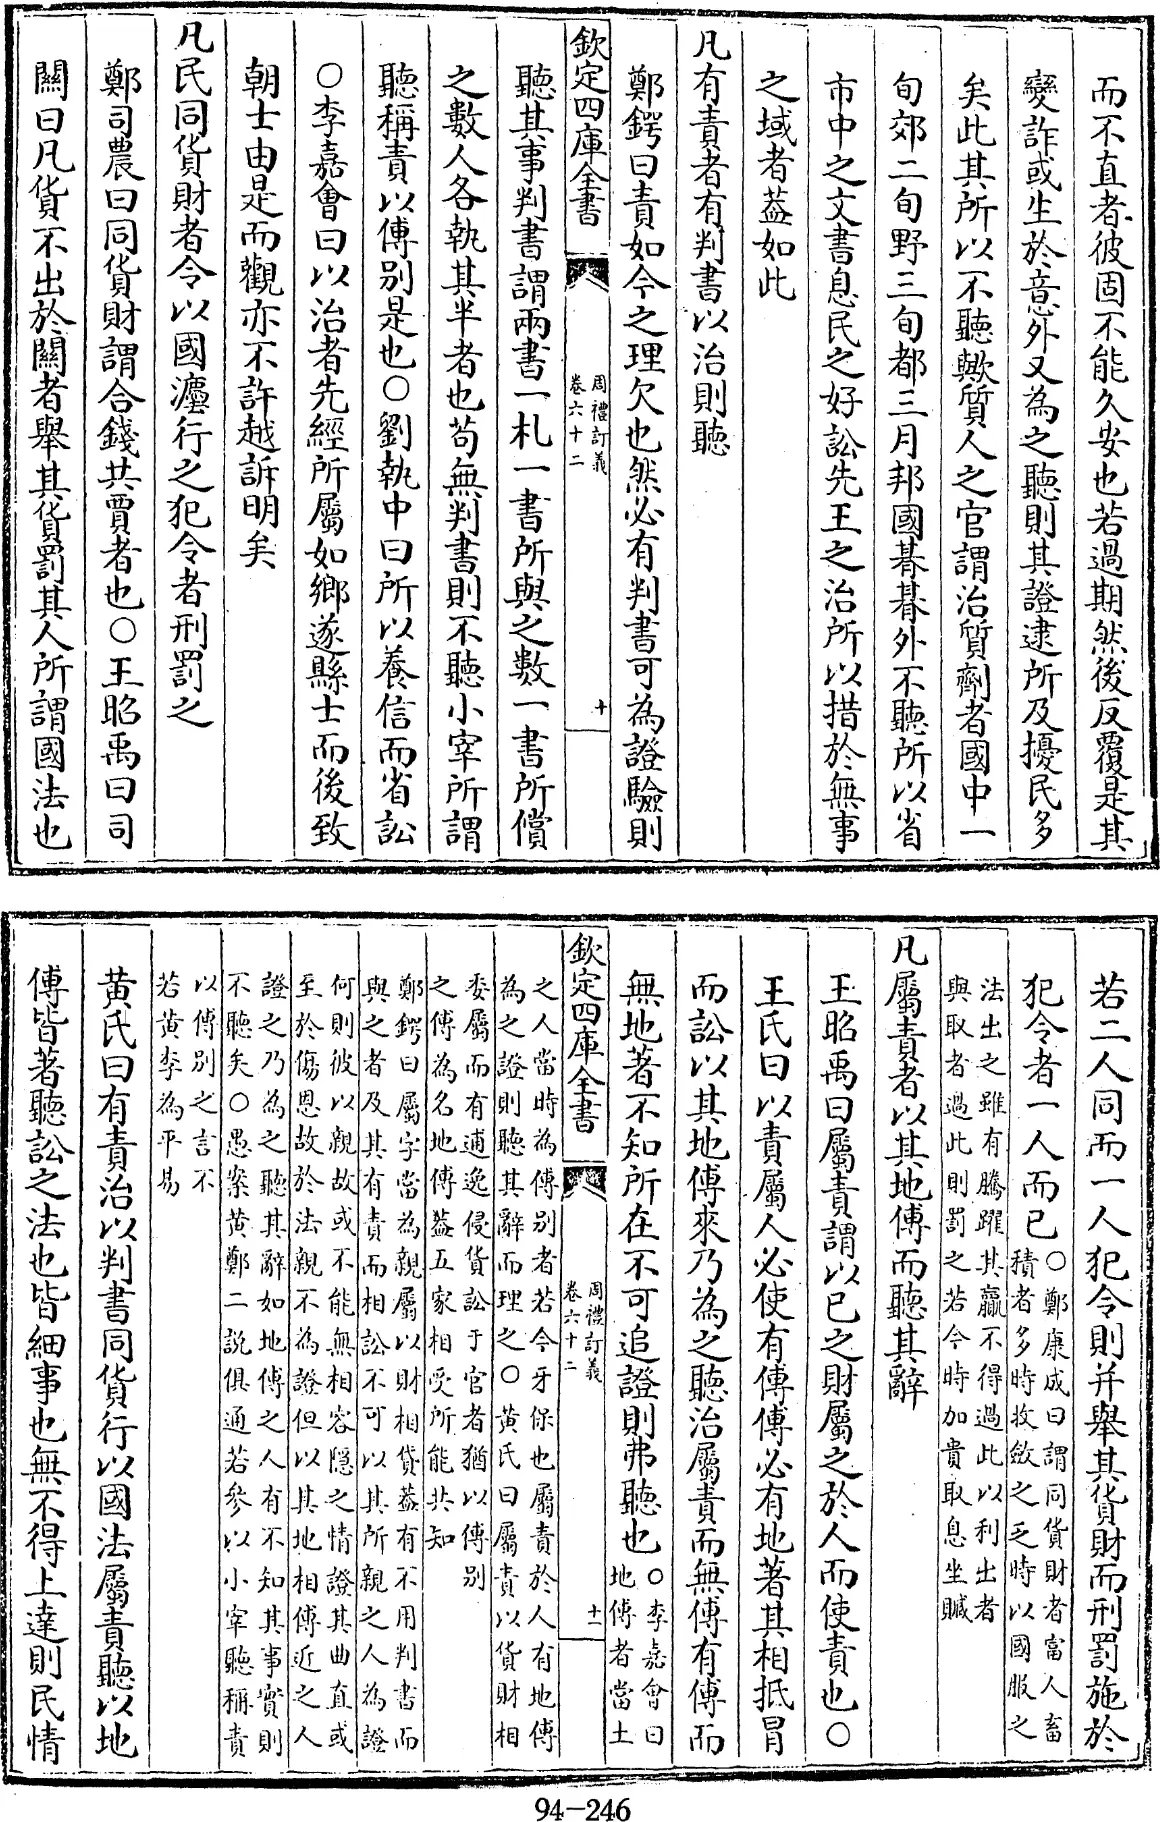 而不直者彼固不能久安也若過期然後反覆是其
變詐或生於意外又為之聽則其證逮所及擾民多
矣此其所以不聽歟質人之官謂治質劑者國中一
旬郊二旬野三旬都三月邦國朞朞外不聽所以省
市中之文書息民之好訟先王之治所以措於無事
之域者葢如此
凡有責者有判書以治則聽
鄭鍔曰責如今之理欠也然必有判書可為證驗則
欽定四庫全書
周禮訂義
卷六十二
十
聽其事判書謂兩書一札一書所與之數一書所償
之數人各執其半者也苟無判書則不聽小宰所謂
聽稱責以傅别是也○劉執中曰所以養信而省訟
○李嘉會曰以治者先經所屬如鄉遂縣士而後致
朝士由是而觀亦不許越訴明矣
凡民同貨財者令以國灋行之犯令者刑罰之
鄭司農曰同貨財謂合錢共賈者也○王昭禹曰司
關曰凡貨不出於關者舉其貨罰其人所謂國法也
若二人同而一人犯令則并舉其貨財而刑罰施於
犯令者一人而已
○鄭康成曰謂同貨財者富人畜
積者多時收斂之乏時以國服之
法出之雖有騰躍其贏不得過此以利出者
與取者過此則罰之若今時加貴取息坐贓
凡屬責者以其地傅而聽其辭
王昭禹曰屬責謂以已之財屬之於人而使責也○
王氏曰以責屬人必使有傅傅必有地著其相抵冒
而訟以其地傅來乃為之聽治屬責而無傅有傅而
無地著不知所在不可追證則弗聽也
○李嘉會曰
地傅者當土
欽定四庫全書
周禮訂義
卷六十二
十一
之人當時為傅别者若今牙保也屬責於人有地傅
為之證則聽其辭而理之○黄氏曰屬責以貨財相
委屬而有逋逸侵貨訟于官者猶以傅别
之傅為名地傅葢五家相受所能共知
鄭鍔曰屬字當為親屬以財相貸葢有不用判書而
與之者及其有責而相訟不可以其所親之人為證
何則彼以親故或不能無相容隱之情證其曲直或
至於傷恩故於法親不為證但以其地相傅近之人
證之乃為之聽其辭如地傅之人有不知其事實則
不聽矣○愚案黄鄭二說俱通若參以小宰聽稱責
以傅别之言不
若黄李為平易
黄氏曰有責治以判書同貨行以國法屬責聽以地
傅皆著聽訟之法也皆細事也無不得上達則民情
94-246